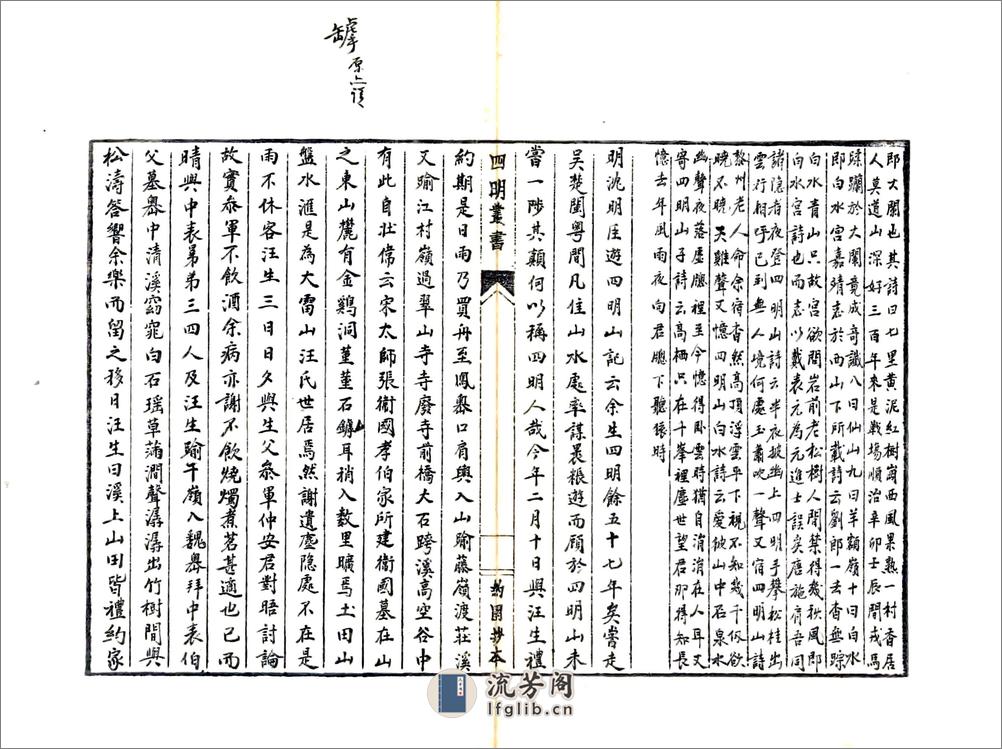 罅原上讀
即大闌也其詩曰七里黃泥紅樹崗西風果熟一村香居
人莫道山深好三百年來是戰場順治辛卯壬辰間戎馬
蹂躪於大闌竟成奇讖八曰仙山九曰羊額嶺十曰白水
即白水宮嘉靖志於西山下所載詩云劉郎一去杳無踪
白水青山只故宮欲問岩前老松樹人間葉得幾秋風即
白水宮詩也而志以戴表元為元進士誤矣唐施肩吾同
諸隱者夜登四明山詩云半夜披幽上四明手攀松桂出
雲行相呼已到無人境何處玉蕭吹一聲又宿四明山詩
黎州老人命余宿杳然高頂浮雲平下視不知幾千仞欲
曉不曉天雞聲又憶四明山白水詩云愛彼山中石泉水
幽聲夜落虛牕裡至今憶得卧雲時猶自涓涓在人耳又
寄四明山子詩云高栖只在千峯裡塵世望君那得知長
憶去年風雨夜向君牕下聽猿時
明沈明臣遊四明山記云余生四明餘五十七年矣嘗走
吳楚閩粵間凡佳山水處率謀褁粻遊而顧於四明山未
嘗一陟其巔何以稱四明人哉今年二月十日與汪生禮
四明叢書
約園抄本
約期是日雨乃買舟至鳳嶴口肩輿入山踰藤嶺渡莊溪
又踰江村嶺過翠山寺寺廢寺前橋大石跨溪高空谷中
有此自壮偉云宋太師張衞國孝伯家所建衞國墓在山
之東山麓有金鷄洞堇堇石罅耳稍入数里曠焉土田山
盤水滙是為大雷山汪氏世居焉然謝遺塵隐處不在是
雨不休客汪生三日日夂與生父叅軍仲安君對晤討論
故實叅軍不飲酒余病亦謝不飲燒燭煮茗甚適也已而
晴與中表弟弟三四人及汪生踰午嶺入魏嶴拜中表伯
父墓嶴中清溪窈窕白石瑶草蒲澗聲潺潺出竹樹間與
松濤答響余樂而留之移日汪生曰溪上山田皆禮約家
流芳阁
lfglib.cn